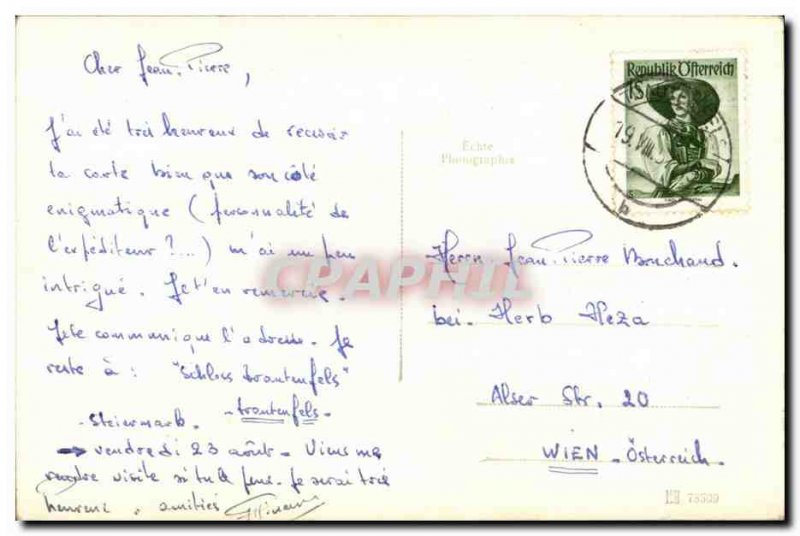 Cher Jean-Pierre,
J'ai été très heureux de recevoir
la carte bien que son côté
enigmatique (personnalité de
l'expéditeur ?...) m'ai un peu
intrigué. Je t'en remercie.
Je te communique l'adresse. Je
reste à : "Schloss Trautenfels"
- trautenfels -
Steiermark.
→ vendredi 23 août - Viens me
rendre visite si tu le peux. Je serai très
heureux. amitiés
Echte
Photographie
Republik Österreich
19.VIII.5
b
Herrn Jean-Pierre Bouchaud.
bei Herb Heza
Alser Str. 20
WIEN - Österreich.
75509
CPAPHIL